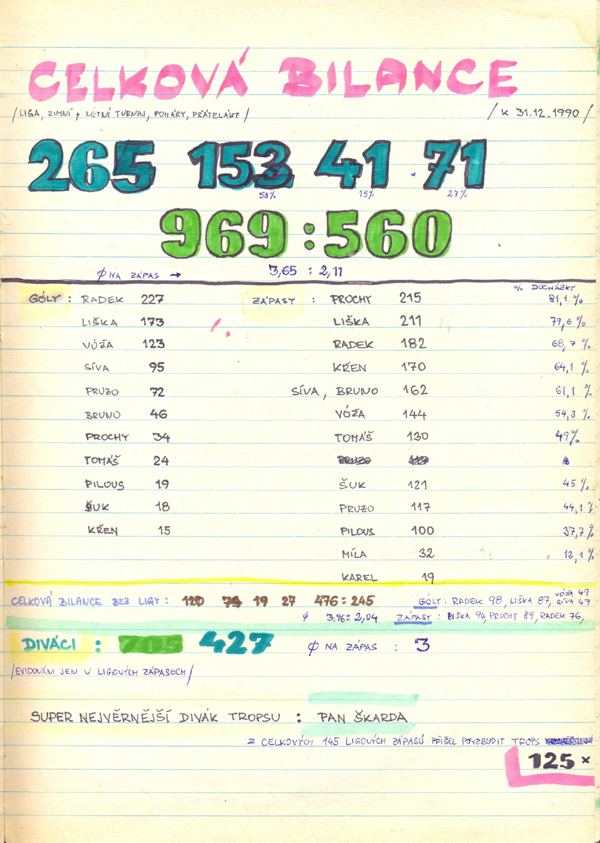 CELKOVÁ BILANCE
/LIGA, ZIMNÍ + LETNÍ TURNAJ, POHÁRY, PŘÁTELÁKY/ /K 31.12.1990/
265 153 41 71
58% 15% 27%
969:560
Ø NA ZÁPAS → 3,65 : 2,11
% DOCHÁZKY
GÓLY : RADEK 227 ZÁPASY : PROCHY 215 81,1 %
LIŠKA 173 LIŠKA 211 79,6 %
VÓŽA 123 RADEK 182 68,7 %
SÍVA 95 KŘEN 170 64,1 %
PRUZO 72 SÍVA, BRUNO 162 61,1 %
BRUNO 46 VÓŽA 144 54,3 %
PROCHY 34 TOMÁŠ 130 49%
TOMÁŠ 24
PILOUS 19 ŠUK 121 45 %
ŠUK 18 PRUZO 117 44,1 %
KŘEN 15 PILOUS 100 37,7 %
MÍLA 32 12,1 %
KAREL 19
CELKOVÁ BILANCE BEZ LIGY : 120 74 19 27 476:245 GÓLY: RADEK 98, LIŠKA 87, VÓŽA 49 SÍVA 47
Ø 3,96:2,04 ZÁPASY: LIŠKA 94, PROCHY 89, RADEK 76,
DIVÁCI : 427 Ø NA ZÁPAS : 3
/EVIDOVÁNI JEN V LIGOVÝCH ZÁPASECH/
SUPER NEJVĚRNĚJŠÍ DIVÁK TROPSU : PAN ŠKARDA
Z CELKOVÝCH 145 LIGOVÝCH ZÁPASŮ PŘIŠEL POVZBUDIT TROPS
125 ×